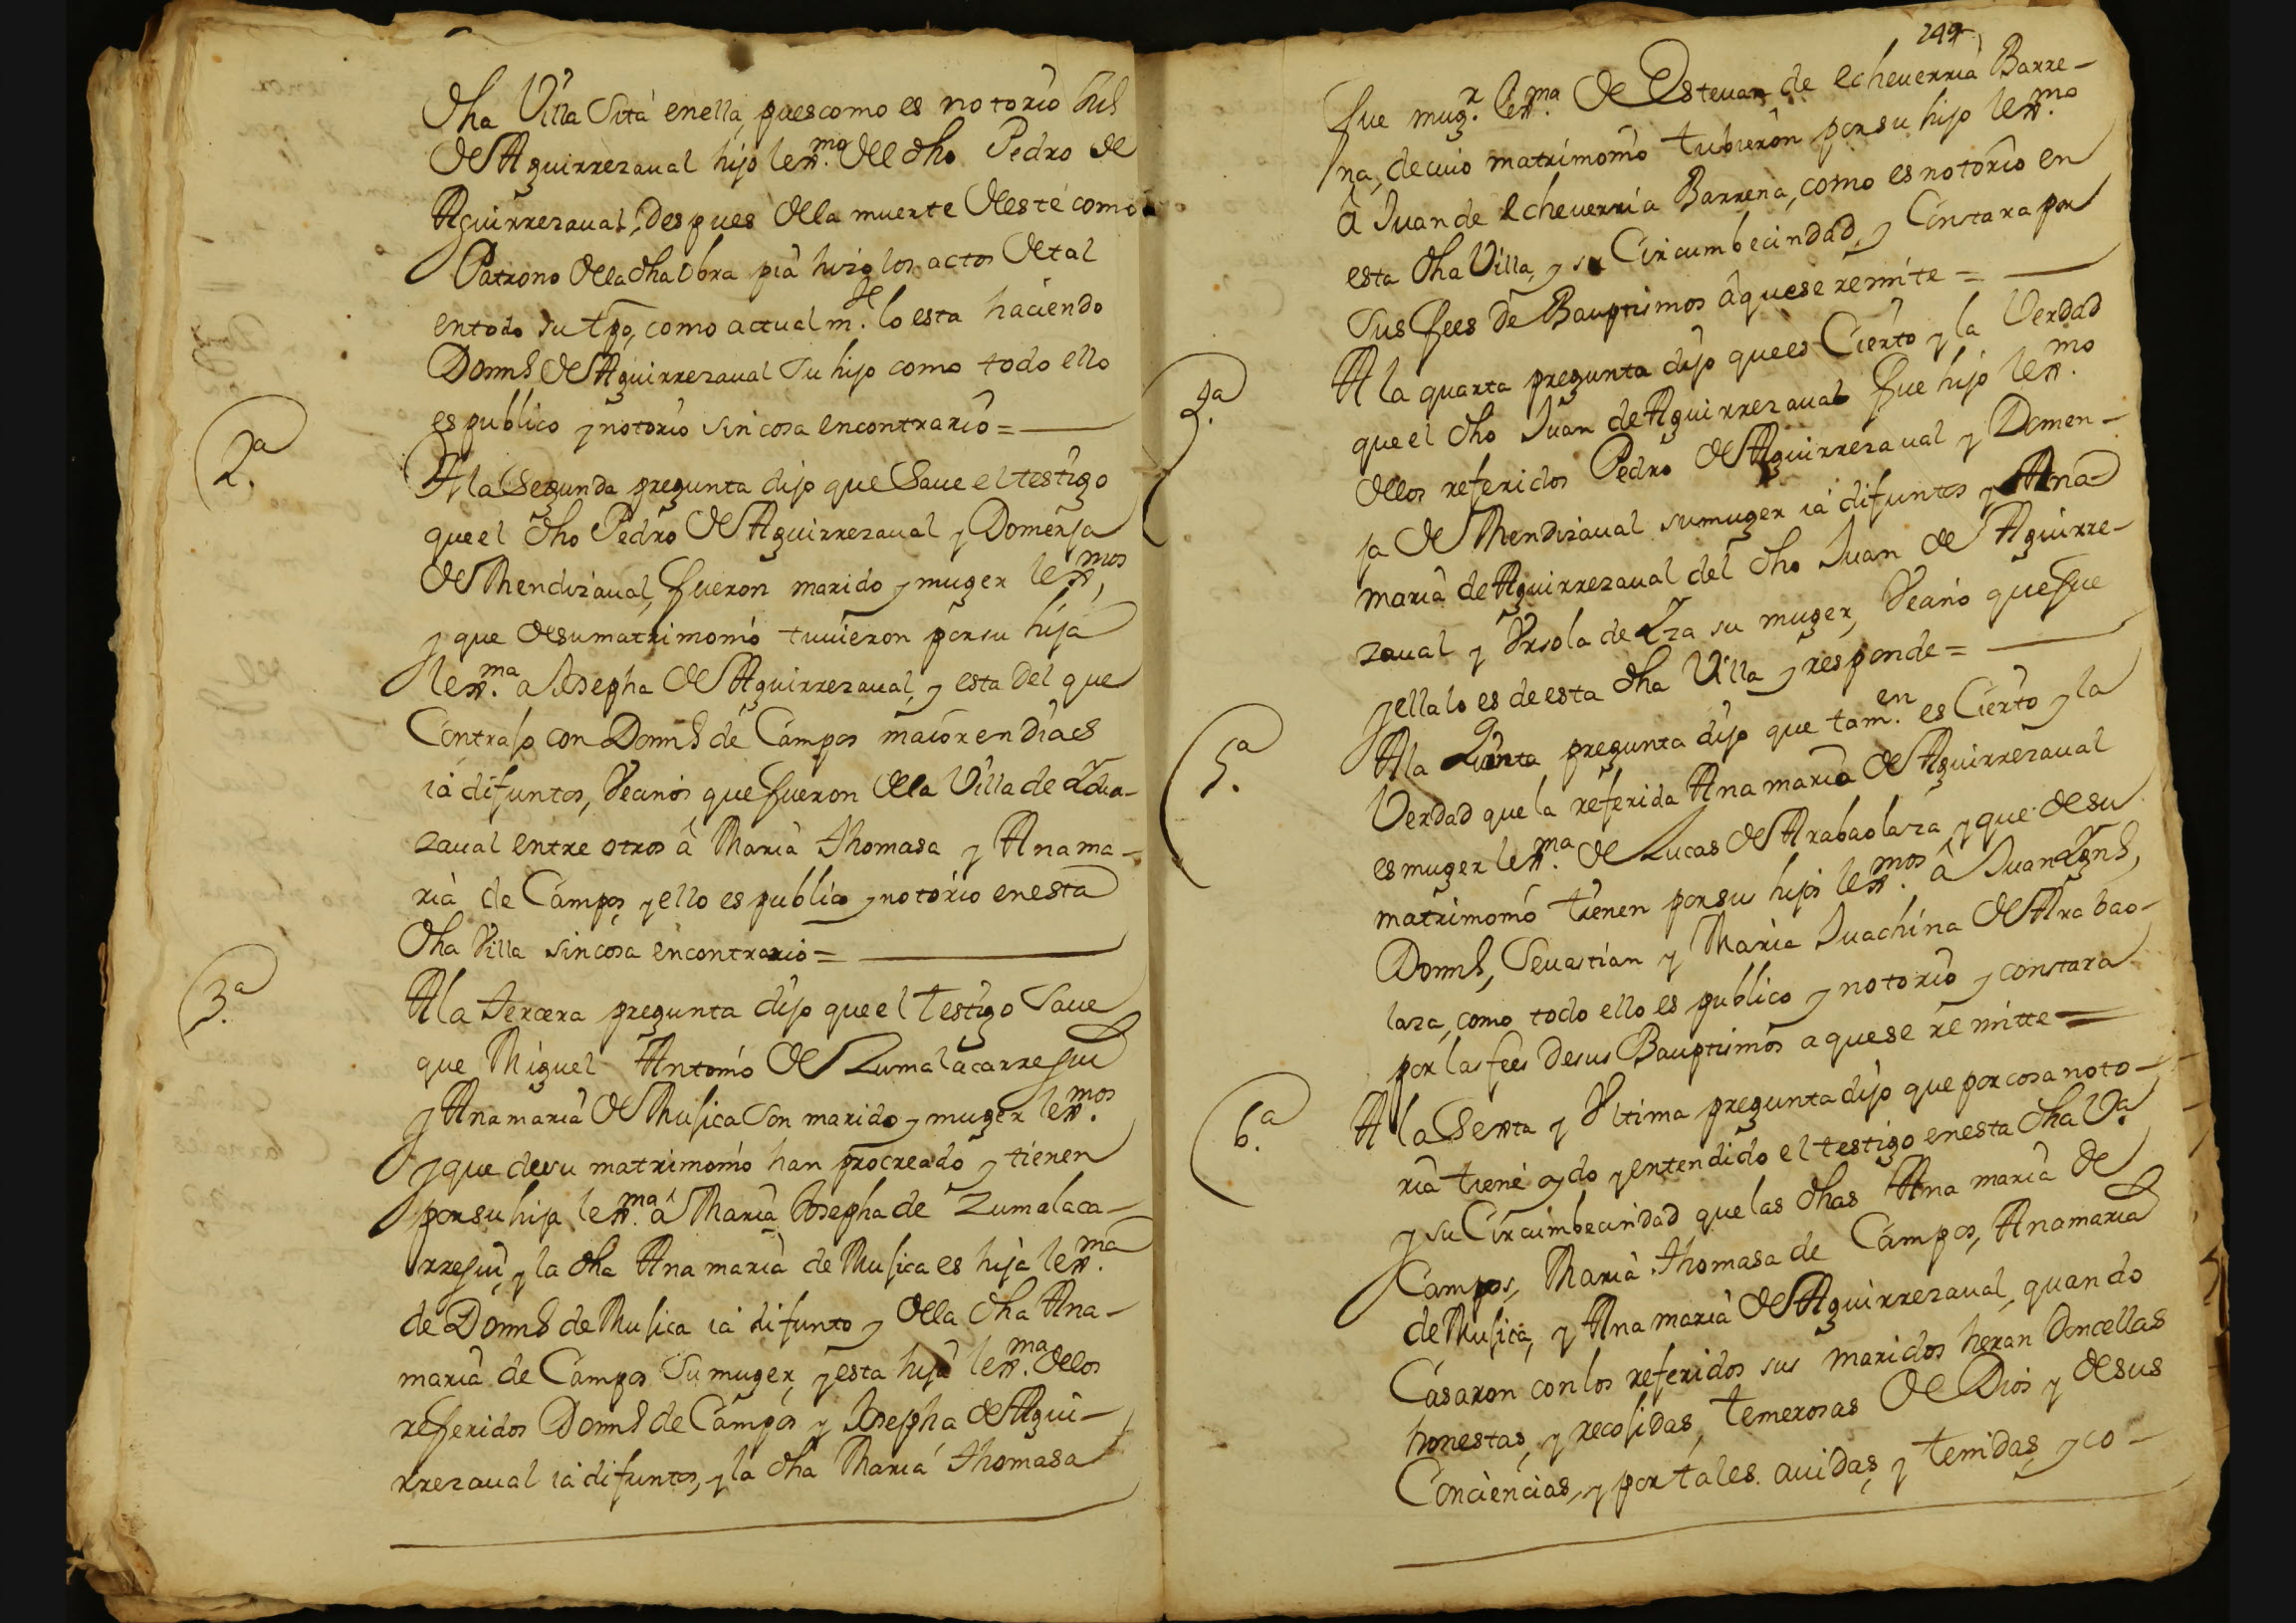 dha Villa Sita en ella, pues como es notorio
de Aguirrezaual hijo lexmo. del dho Pedro de
Aguirrezaual, Despues de la muerte de este como
Patrono de la dha Obra pia hizo los actos de tal
en todo su tpo, como actualmte. lo esta haciendo
Domns de Aguirrezaual Su hijo como todo ello
es publico y notorio sin cosa en contrario =
2.a
A la Segunda pregunta dijo que Saue el testigo
que el dho Pedro de Aguirrezaual y Domenja
de Mendizaual, fueron marido y muger lexmos,
y que de su matrimonio tuuieron por su hija
lexma. a Josepha de Aguirrezaual, y esta del que
Contrajo con Domns de Campos maior en dias
ia difuntos, Vecinos que fueron de la Villa de Ydia-
zaual entre otros â Maria Thomasa y Ana ma-
ria de Campos, y ello es publico y notorio en esta
dha Villa sin cosa en contrario =
3.a
A la Tercera pregunta dijo que el testigo Saue
que Miguel Antonio de Zumalacarregui
y Ana maria de Mujica Son marido y muger lexmos.
y que de su matrimonio han procreado y tienen
por su hija lexma. â Maria Josepha de Zumalaca-
rregui, y la dha Ana maria de Mujica es hija lexma.
de Domns de Mujica ia difunto y de la dha Ana-
maria de Campos Su muger, y esta hija lexma. de los
referidos Domns de Campos y Josepha de Agui-
rrezaual ia difuntos, y la dha Maria Thomasa
249
fue mugr. lexma. de Estevan de Echeuerria Barre-
na, de cuio matrimonio tubieron por su hijo lexmo.
â Juan de Echeuerria Barrena, como es notorio en
esta dha Villa, y su Circumbecindad, y Constara por
Sus fees de Bauptismos â que se remite =
4.a
A la quarta pregunta dijo que es Cierto y la Verdad
que el dho Juan de Aguirrezaual fue hijo lexmo.
de los referidos Pedro de Aguirrezaual y Domen-
ja de Mendizaual su muger ia difuntos y Ana
maria de Aguirrezaual del dho Juan de Aguirre-
zaual y Vrsola de Yza su muger, Vecino que fue
y ella lo es de esta dha Villa y responde =
5.a
A la Quinta pregunta dijo que tamen. es Cierto y la
Verdad que la referida Ana maria de Aguirrezaual
es muger lexma. de Lucas de Arabaolaza, y que de su
matrimonio tienen por sus hijos lexmos. â Juan Ygns,
Domns, Seuastian y Maria Juachina de Arabao-
laza, como todo ello es publico y notorio y constara
por las fees de sus Bauptismos a que se remitte =
6.a
A la Sexta y Vltima pregunta dijo que por cosa noto-
ria tiene oydo y entendido el testigo en esta dha Va.
y su Circumbecindad que las dhas Ana maria de
Campos, Maria Thomasa de Campos, Ana maria
de Mujica, y Ana maria de Aguirrezaual, quando
Casaron con los referidos sus maridos heran Doncellas
honestas, y recojidas, temerosas de Dios y de sus
Conciencias, y por tales auidas, y tenidas, y co-